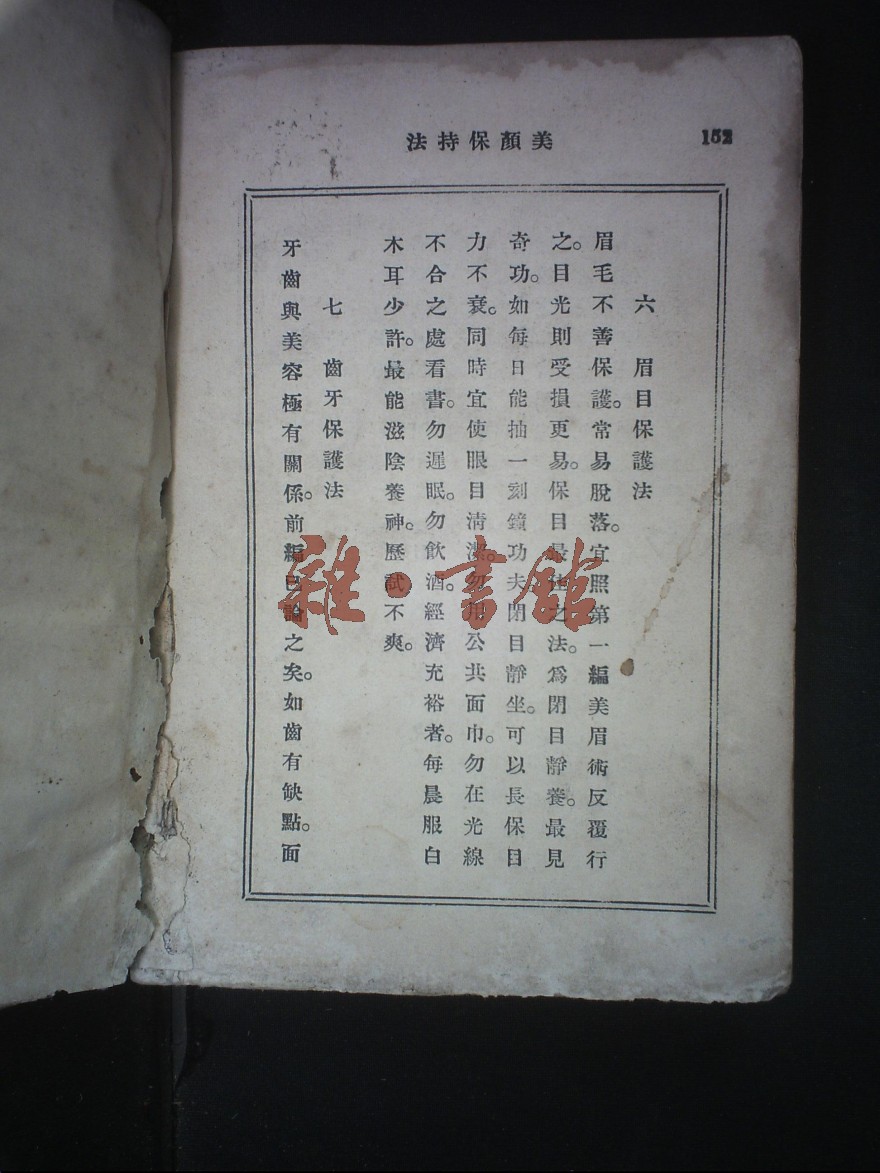 美顏保持法
152
六 眉目保護法
眉毛不善保護。常易脫落。宜照第一編美眉術反覆行
之。目光則受損更易。保目最佳之法。爲閉目靜養。最見
奇功。如每日能抽一刻鐘功夫閉目靜坐。可以長保目
力不衰。同時宜使眼目清潔。勿用公共面巾。勿在光線
不合之處看書。勿遲眠。勿飲酒。經濟充裕者。每晨服白
木耳少許。最能滋陰養神。歷試不爽。
七 齒牙保護法
牙齒與美容極有關係。前編已論之矣。如齒有缺點。面
雜·書館